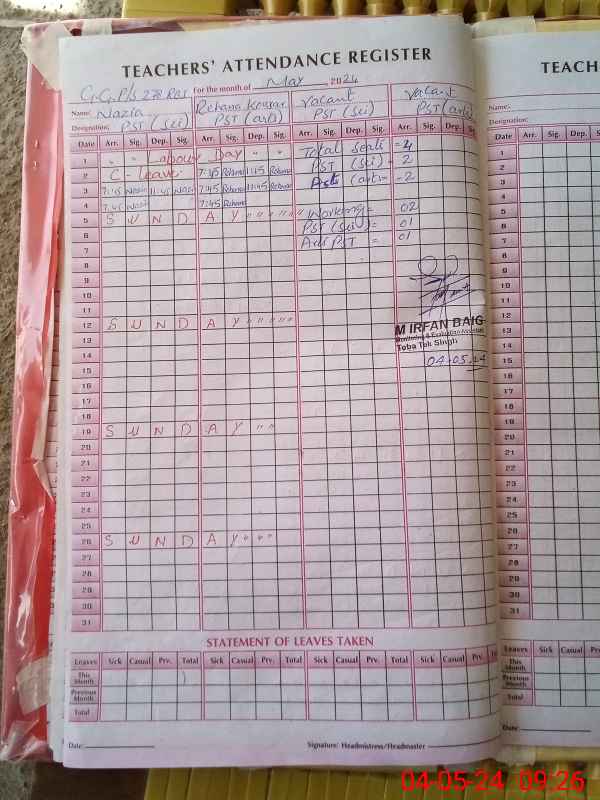 TEACHERS' ATTENDANCE REGISTER
G.G.P/S 278 RBS For the month of May 2024
Name: Nazia Rehana Kousar Vacant Vacant
Designation: PST (Sci) PST (arts) PST (Sci) PST (arts)
Date Arr. Sig. Dep. Sig. Arr. Sig. Dep. Sig. Arr. Sig. Dep. Sig. Arr. Sig. Dep. Sig.
1 " " Labour Day " " Total Seats = 4
2 C - leave 7:45 Rehana 11:45 Rehana PST (Sci) = 2
3 7:45 Nazia 11:45 Nazia 7:45 Rehana 11:45 Rehana (arts) = 2
4 7:45 Nazia 7:45 Rehana
5 S U N D A Y " " " " " " Working = 02
6 PST (Sci) = 01
7 PST = 01
8
9
10
11
12 S U N D A Y " " " " "
13
14
15
16
17
18
19 S U N D A Y " "
20
21
22
23
24
25
26 S U N D A Y " " "
27
28
29
30
31
M IRFAN BAIG
Monitoring & Evaluation Assistant
Toba Tek Singh
04.05.24
STATEMENT OF LEAVES TAKEN
Leaves Sick Casual Prv. Total Sick Casual Prv. Total Sick Casual Prv. Total Sick Casual Prv.
This Month
Previous Month
Total
Date: Signature: Headmistress/Headmaster
TEACH
Name:
Designation:
Date Arr. Sig. Dep. Sig.
1
2
3
4
5
6
7
8
9
10
11
12
13
14
15
16
17
18
19
20
21
22
23
24
25
26
27
28
29
30
31
Leaves Sick Casual
This Month
Previous Month
Total
Date:
04-05-24 09:26